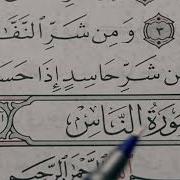 ٣ وَ مِن شَرِّ النَّفَّـ
مِن شَرِّ حَاسِدٍ إِذَا حَسَـ
سُورَةُ النَّاسِ